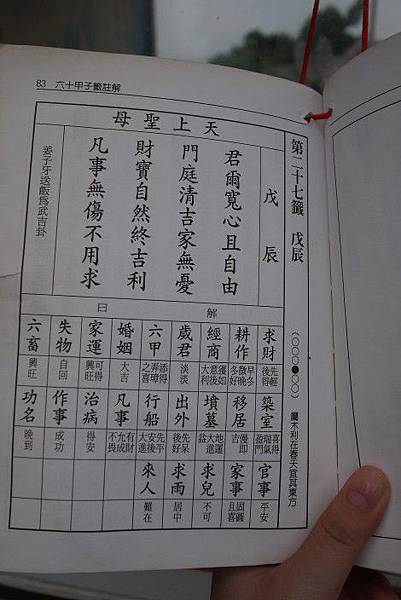 83 六十甲子籤註解
第二十七籤 戊辰
(○○○●○○) 屬木利在春天宜其東方
天上聖母
戊辰
君爾寬心且自由
門庭清吉家無憂
財寶自然終吉利
凡事無傷不用求
姜子牙送飯為武吉卦
解曰
求財
先輕後得
耕作
經商
歲君
淡淡
六甲
添得弄璋之喜
婚姻
大吉
家運
可得興旺
失物
自回
六畜
興旺
築室
喜得瑞氣盈門
移居
慢即吉
墳墓
地運大進益
出外
先呆後好
行船
先平安後大進
凡事
有財允成不畏
治病
得安
作事
成功
功名
晚到
官事
平安
家事
團圓且喜
求兒
不可
求雨
居中
來人
難在